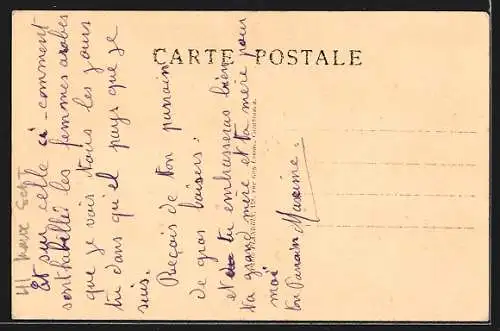 CARTE POSTALE
Et sur celle ci - comment
sont habillé les femmes arabes
que je vois tous les jours
tu dans qu'el pays que je
suis.
Reçois de ton parrain
de gros baisers.
et tu embrasseras bien
ta grand mère et ta mère pour
moi
ton Parrain Maxime.